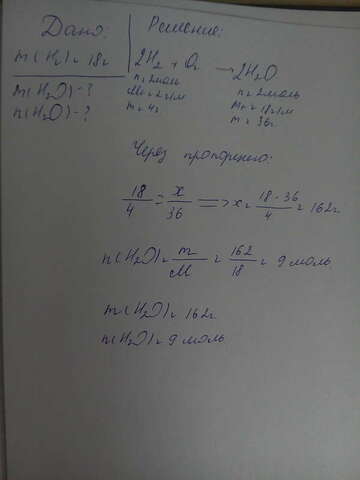 Дано:
m(H₂) = 18г
m(H₂O) - ?
n(H₂O) - ?
Решение:
2H₂ + O₂ → 2H₂O
n = 2моль n = 2моль
M = 2г/м Mr = 18г/м
m = 4г m = 36г
Через пропорцию:
18/4 = x/36 => x = 18·36/4 = 162г
n(H₂O) = m/M = 162/18 = 9 моль
m(H₂O) = 162г
n(H₂O) = 9 моль